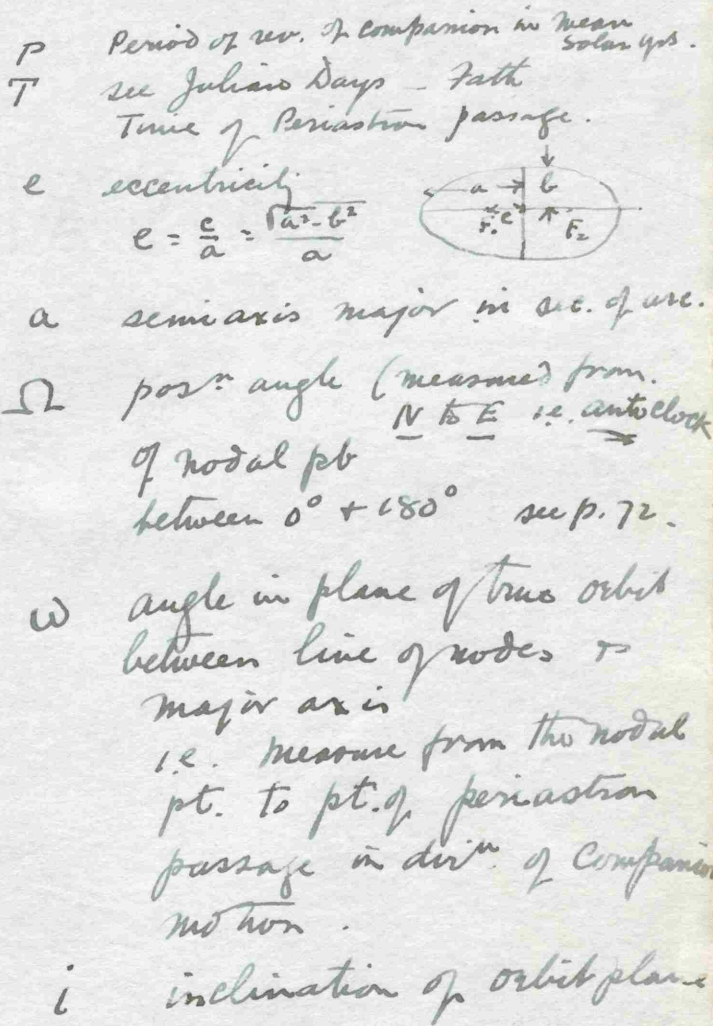 P Period of rev. of companion in mean
solar yrs.
T see Julian Days - Fath
Time of Periastron passage.
e eccentricity
e = c/a = √a²-b²/a
a b
F₁ c F₂
a semi axis major in sec. of arc.
Ω posⁿ angle (measured from
N to E i.e. anticlock
of nodal pt
between 0° + 180° see p. 72.
ω angle in plane of true orbit
between line of nodes +
major axis
i.e. measure from the nodal
pt. to pt. of periastron
passage in dirⁿ of Companion
motion.
i inclination of orbit plane